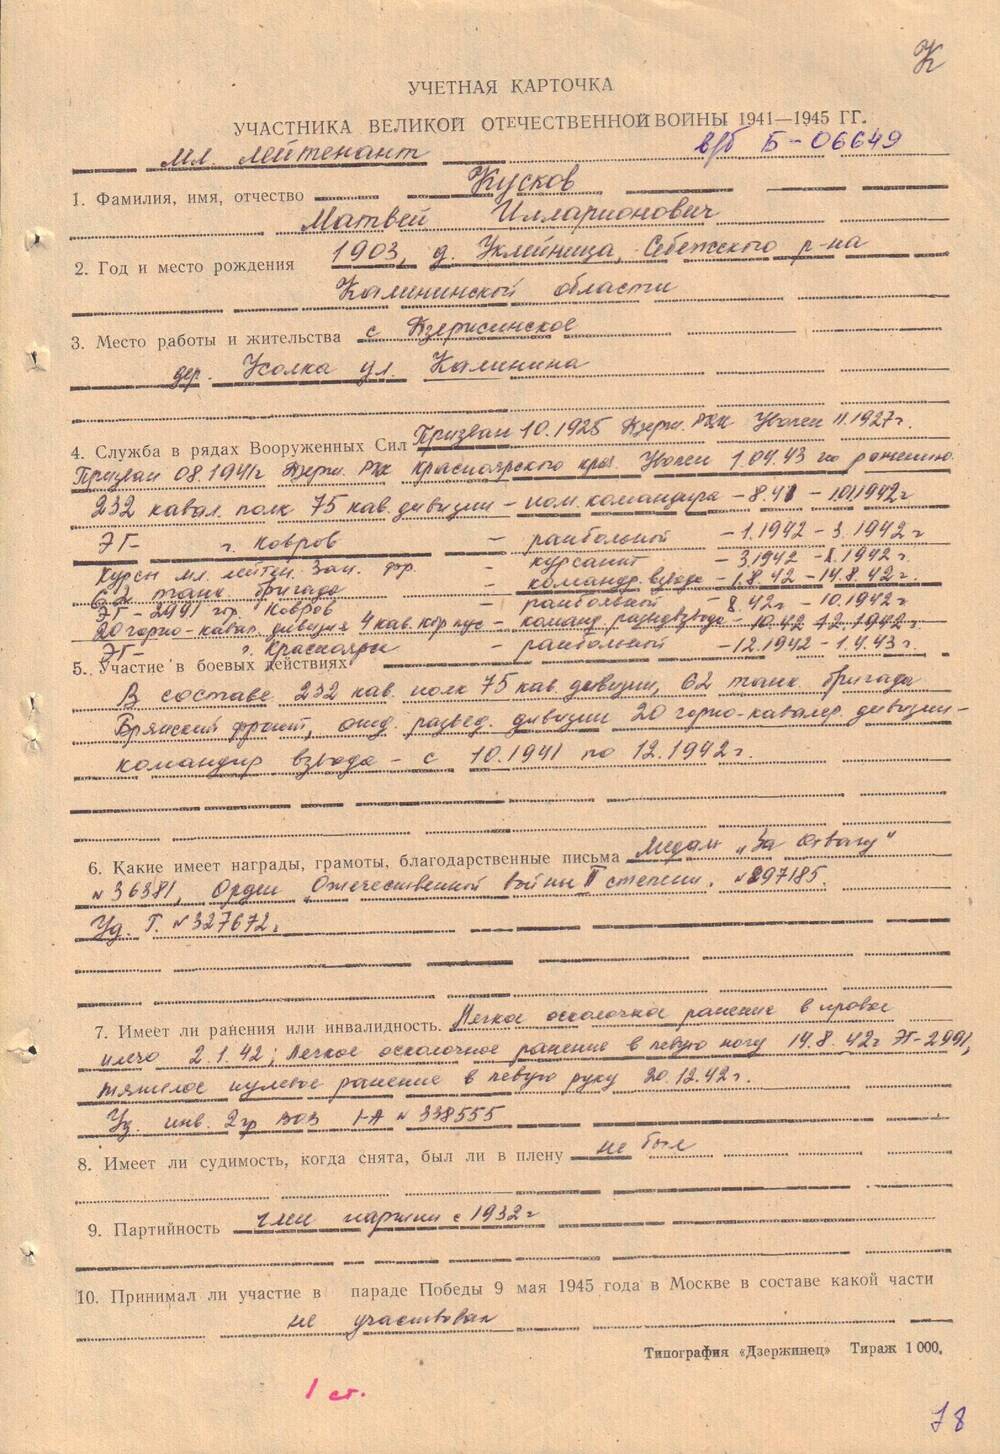 К
УЧЕТНАЯ КАРТОЧКА
УЧАСТНИКА ВЕЛИКОЙ ОТЕЧЕСТВЕННОЙ ВОЙНЫ 1941—1945 ГГ.
мл. лейтенант в/б Б-06649
1. Фамилия, имя, отчество Кусков
Матвей Илларионович
2. Год и место рождения 1903, д. Уклейница, Себежского р-на
Калининской области
3. Место работы и жительства с Дзержинское
дер. Усолка ул. Калинина
4. Служба в рядах Вооруженных Сил Призван 10.1925 Дзерж. РВК Уволен 11.1927г.
Призван 08.1941г Дзерж. РВК Красноярского края. Уволен 1.04.43 по ранению
232 кавал. полк 75 кав. дивизии – пом. командира – 8.41 – 101942г
ЭГ- г. Ковров – ранбольной – 1.1942 – 3.1942г
Курсы мл. лейтен. Зап. фр. – курсант – 3.1942 – 8.1942г.
62 танк. бригада – командир взвода – 1.8.42 – 14.8.42г.
ЭГ-2991 гор. Ковров – ранбольной – 8.42г – 10.1942г
20 горно-кавал. дивизия 4 кав. корпус – команд. разведвзвода – 10.42 12.1942г.
ЭГ- г. Красноярск – ранбольной – 12.1942 – 1.4.43г.
5. Участие в боевых действиях
В составе 232 кав. полк 75 кав. дивизии, 62 танк. бригада
Брянский фронт, отд. развед. дивизии 20 горно-кавалер. дивизии –
командир взвода – с 10.1941 по 12.1942г.
6. Какие имеет награды, грамоты, благодарственные письма Медаль „За отвагу"
№36381, Орден Отечественной войны II степени. №297185.
Уд. Г. №327672.
7. Имеет ли ранения или инвалидность. Легкое осколочное ранение в правое
плечо 2.1.42; Легкое осколочное ранение в левую ногу 14.8.42г ЭГ-2991,
тяжелое пулевое ранение в левую руку 20.12.42г.
Уд. инв. 2 гр ВОВ 1-А №338555
8. Имеет ли судимость, когда снята, был ли в плену не был
9. Партийность член партии с 1932г
10. Принимал ли участие в параде Победы 9 мая 1945 года в Москве в составе какой части
не участвовал
Типография «Дзержинец» Тираж 1 000.
1 ст.
78